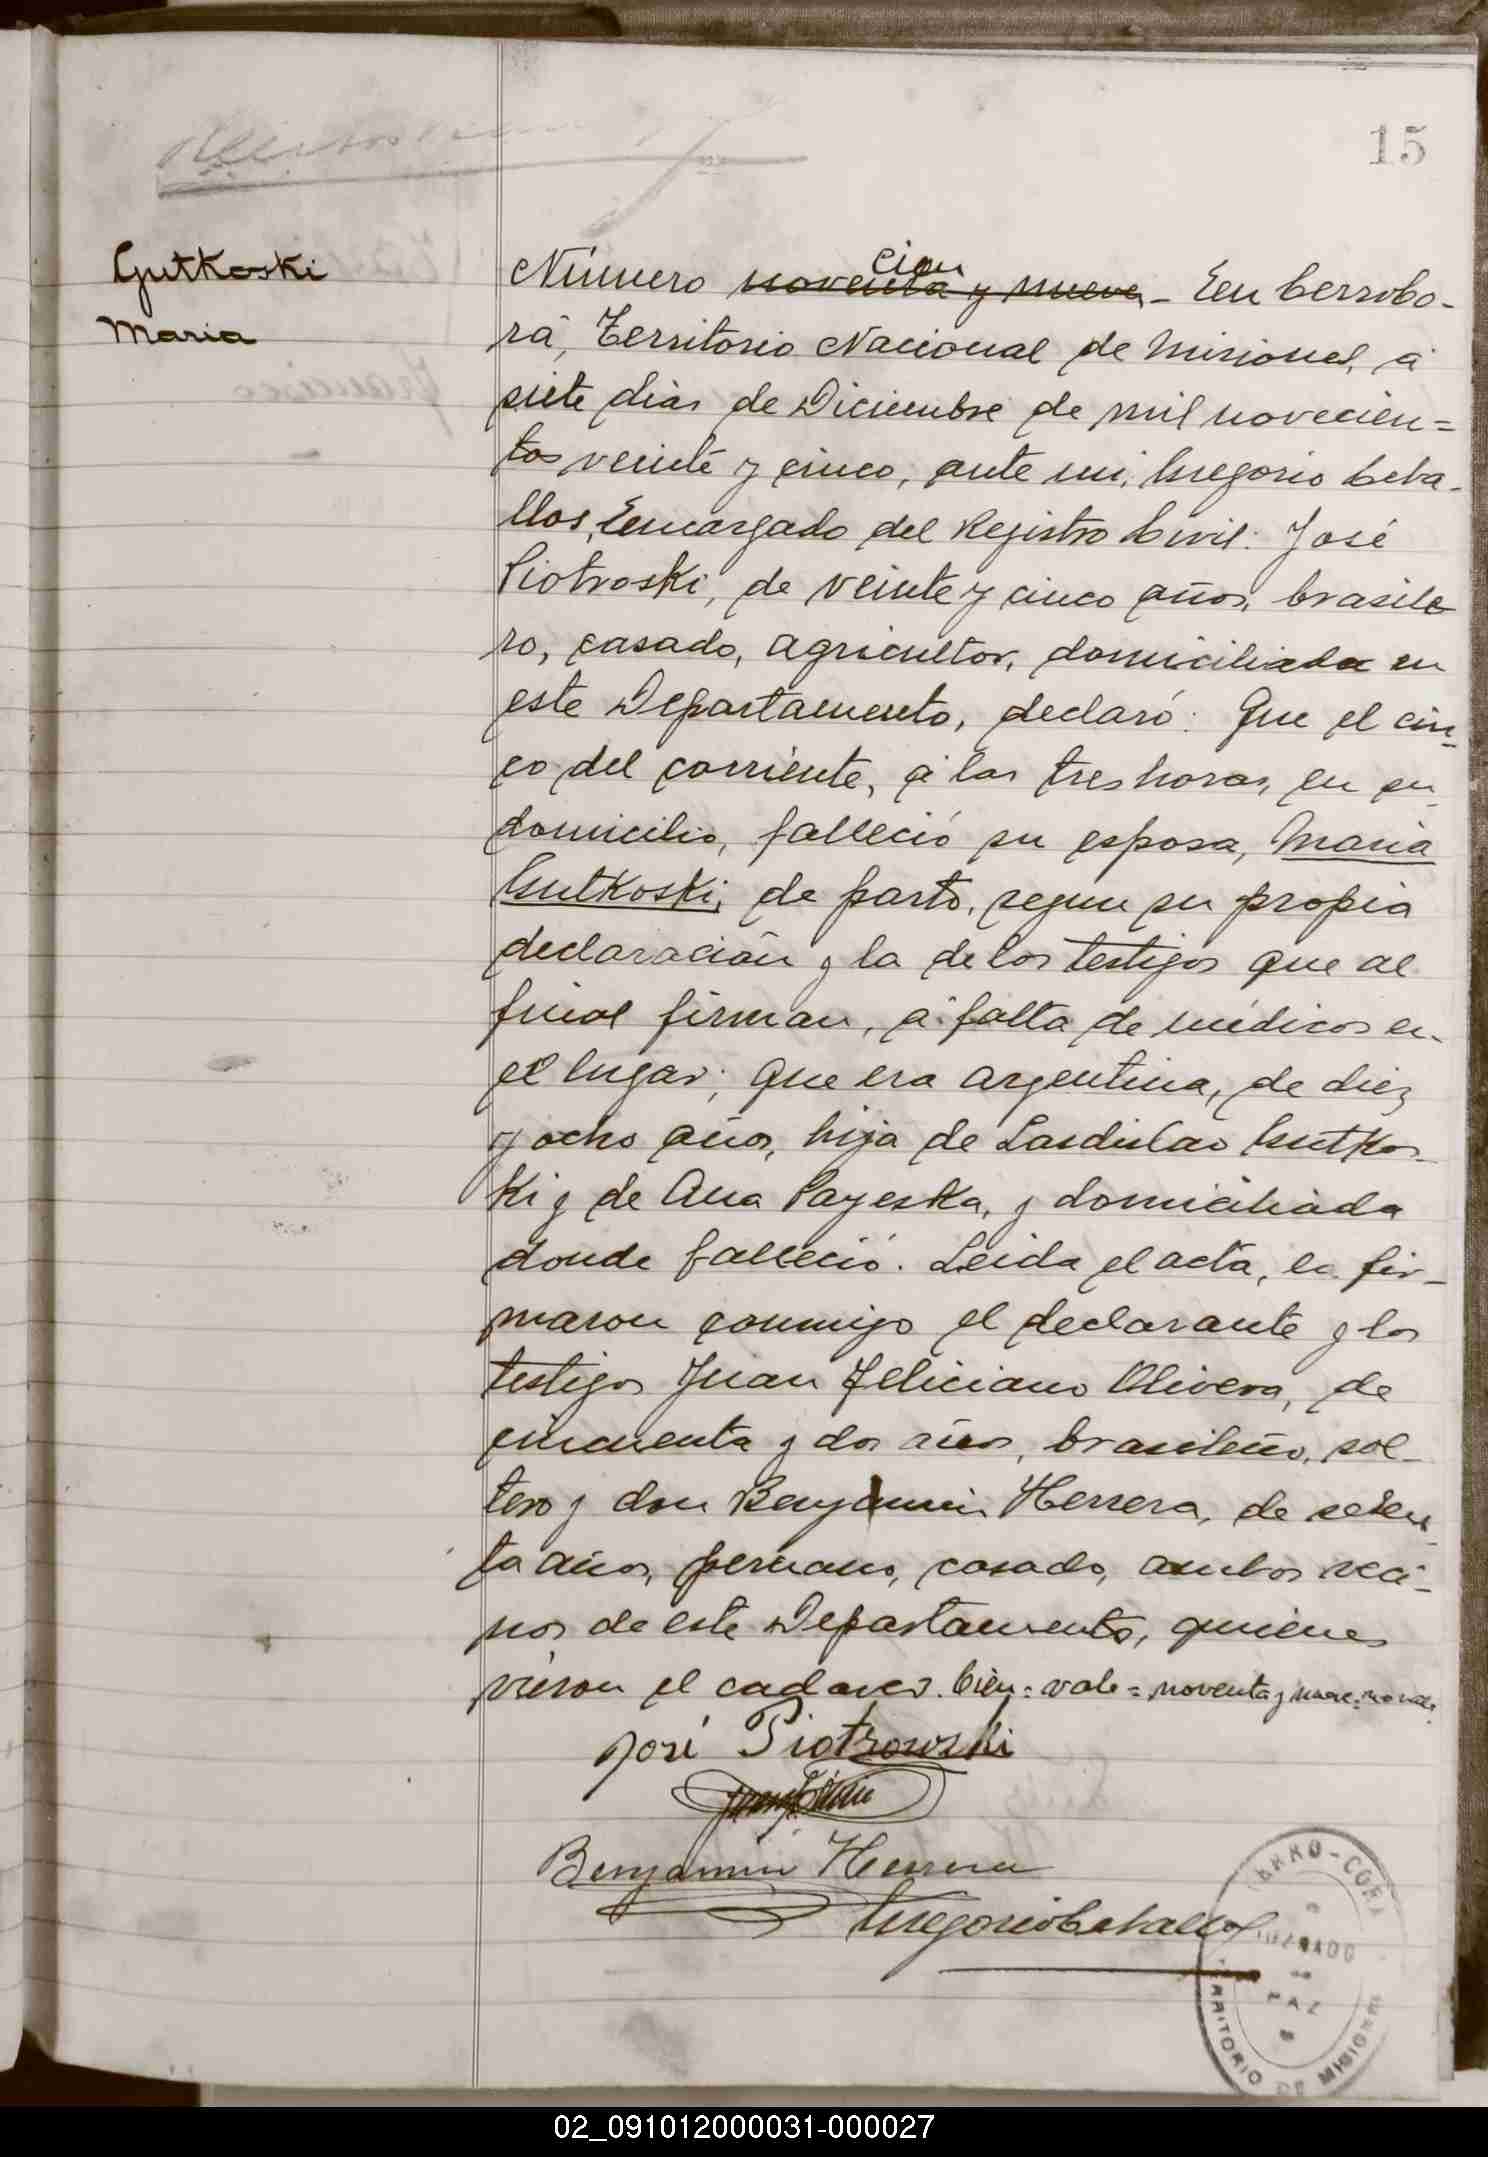 15
Gutkoski
Maria
cien
Número noventa y nueve - En Cerrobo-
rá, Territorio Nacional de Misiones, á
siete dias de Diciembre de mil novecien=
tos veinte y cinco, ante mi, Gregorio Ceba-
llos, Encargado del Registro Civil: José
Piotroski, de veinte y cinco años, brasile
ro, casado, agricultor, domiciliado en
este Departamento, declaró: Que el cin-
co del corriente, á las tres horas, en su
domicilio, falleció su esposa, Maria
Gutkoski, de parto, segun su propia
declaración y la de los testigos que al
final firman, á falta de médicos en
el lugar; que era argentina, de diez
y ocho años, hija de Lasdislao Gutkos-
ki y de Ana Payeska, y domiciliada
donde falleció. Leida el acta, la fir-
maron conmigo el declarante y los
testigos Juan Feliciano Olivera, de
cincuenta y dos años, brasileño, sol-
tero y don Benjamin Herrera, de seten-
ta años, peruano, casado, ambos veci-
nos de este Departamento, quienes
vieron el cadaver. Cien = vale = noventa y nueve = no vale.
José Piotrowski
Benjamin Herrera
Gregorio Ceballos
CERRO-CORÁ
JUZGADO
DE
PAZ
TERRITORIO DE MISIONES
02_091012000031-000027